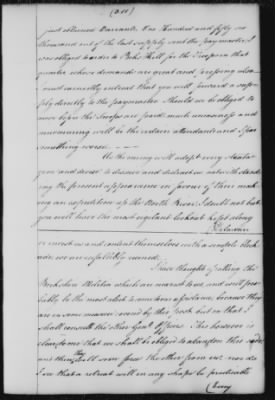 (211)
just obtained Warrants. One Hundred and fifty six
thousand out of the last supply sent the paymaster, I
was obliged to order to Peeks Kill for the Troops in that
quarter whose demands are great and pressing. I there
fore must earnestly intreat that you will forward a sup-
ply directly to the paymaster. Should we be obliged to
move before the Troops are paid much uneasiness and
murmuring will be the certain attendants and I fear
something worse. — —
As the enemy will adopt every strata-
gem and device to deceive and distract us, notwithstand-
ing the present appearance in favour of their mak-
ing an expedition up the North River I doubt not but
you will have the most vigilant lookout kept along
(Delaware
or invest us and content themselves with a complete Block-
ade, we are infallibly ruined.
I have thought of calling the
Berkshire Militia which are nearest to us, and will pro-
bably be the most alert to come to our assistance, because they
are in some manner covered by this post: but on that I
shall consult the other Genl Officers. This however is
clear to me that we shall be obliged to abandon this side
and then They will soon force the other from us; nor do
I see that a retreat will in any shape be practicable
(Every